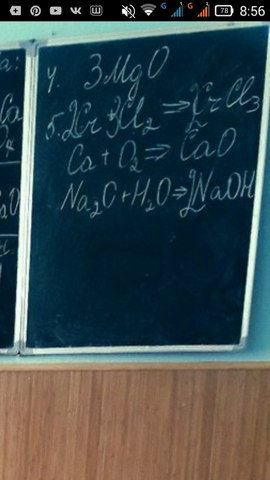 78 8:56
4. 3MgO
5. 2Cr + 3Cl₂ ⇒ 2CrCl₃
Ca + O₂ ⇒ CaO
Na₂O + H₂O ⇒ 2NaOH